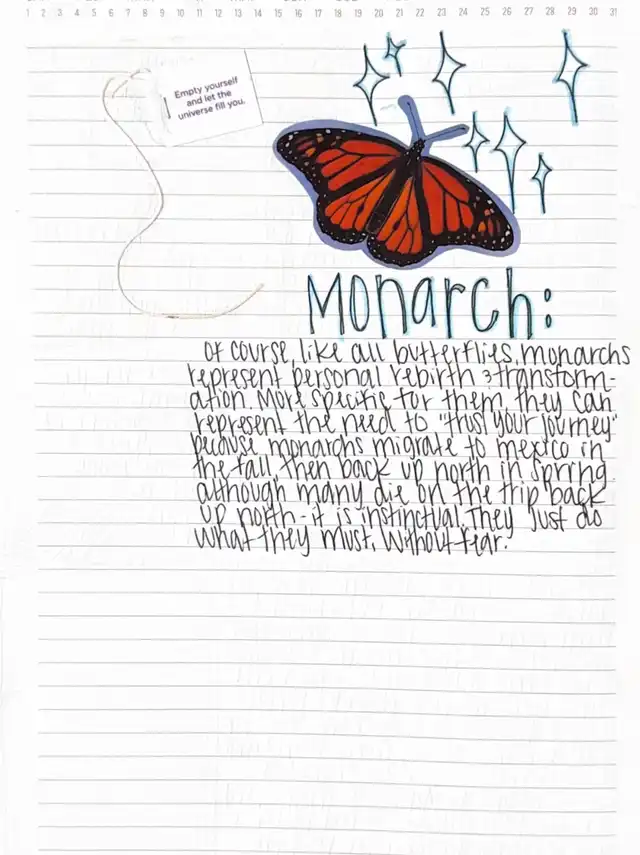 1 2 3 4 5 6 7 8 9 10 11 12 13 14 15 16 17 18 19 20 21 22 23 24 25 26 27 28 29 30 31
Empty yourself
and let the
universe fill you.
Monarch:
Of course, like all butterflies, monarchs
represent personal rebirth & transform-
ation. More specific for them, they can
represent the need to "trust your journey"
because monarchs migrate to mexico in
the fall, then back up north in spring.
although many die on the trip back
up north - it is instinctual. They just do
what they must, without fear.